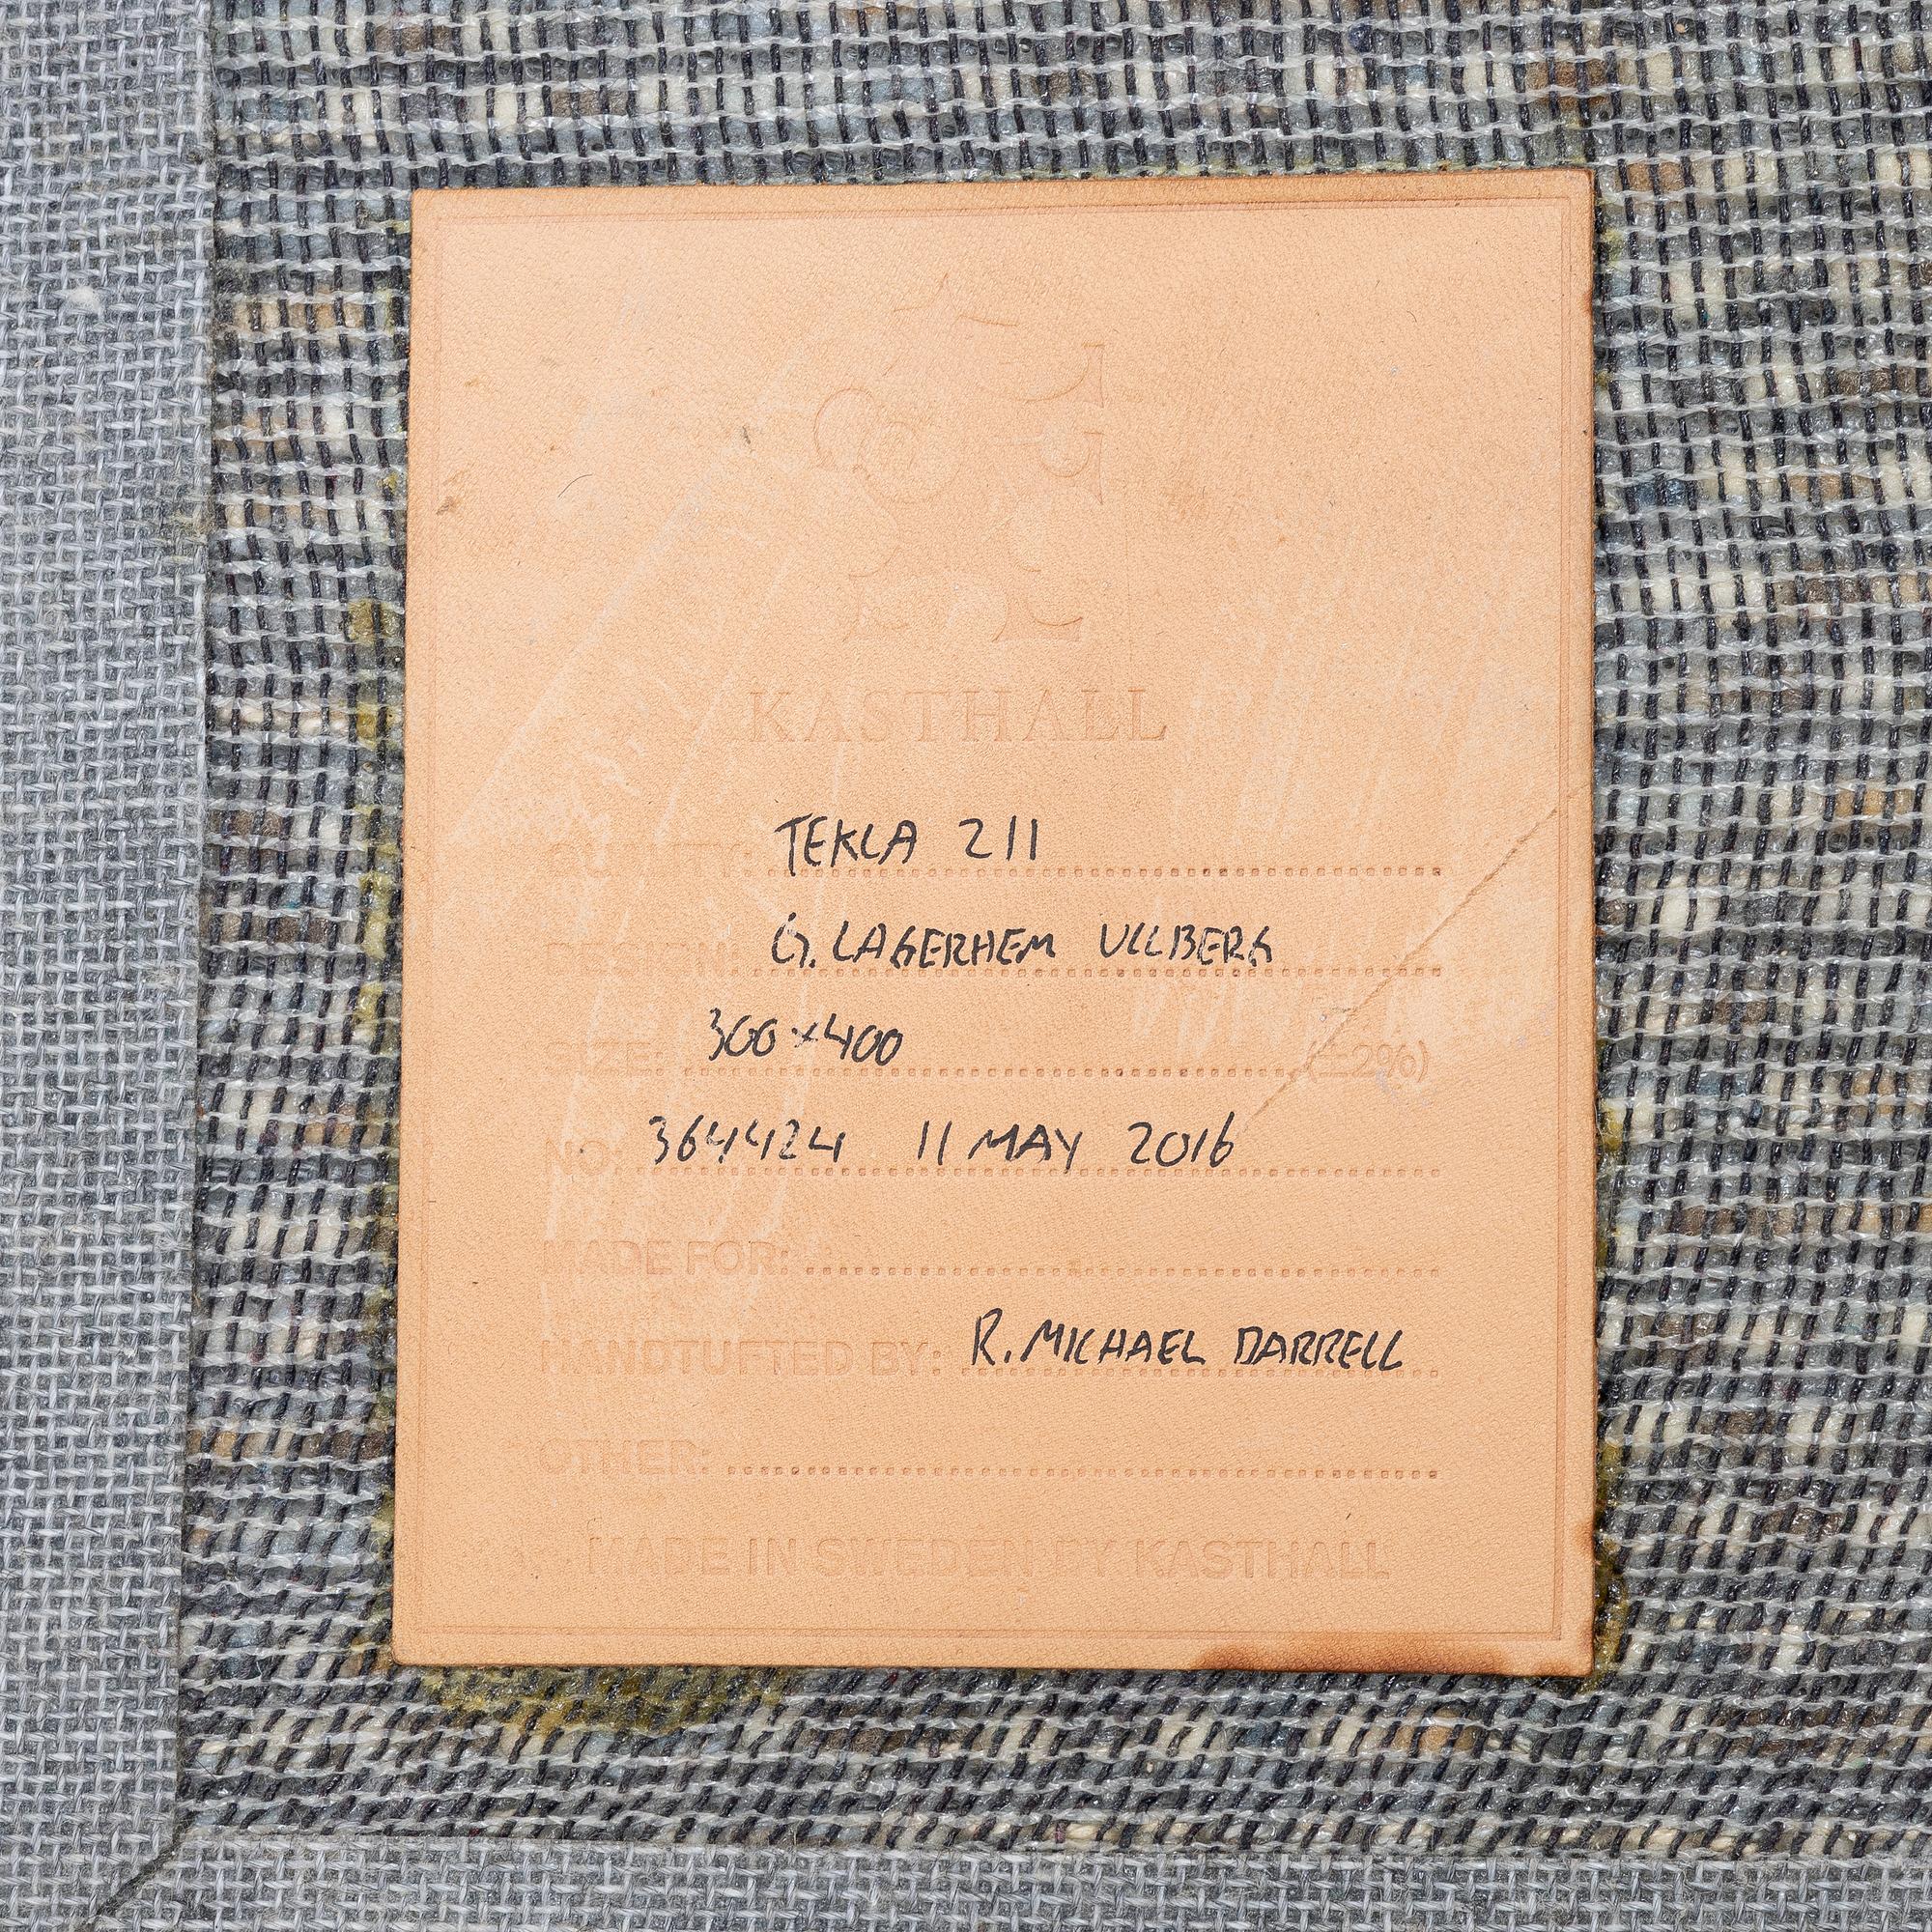 KASTHALL
QUALITY: TEKLA 211
DESIGN: G. LAGERHEM ULLBERG
SIZE: 300 x 400 (±2%)
NO: 364424 11 MAY 2016
MADE FOR:
HANDTUFTED BY: R. MICHAEL DARRELL
OTHER:
MADE IN SWEDEN BY KASTHALL